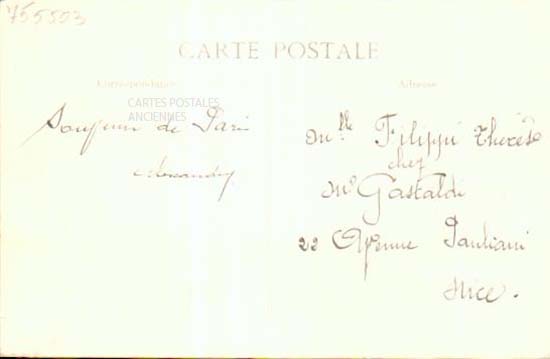 755553
CARTE POSTALE
Correspondance
Adresse
CARTES POSTALES
ANCIENNES
Souvenir de Paris
Mlle Filippi Thérèse
chez
Mr Gastaldi
22 Avenue Pauliani
Nice.